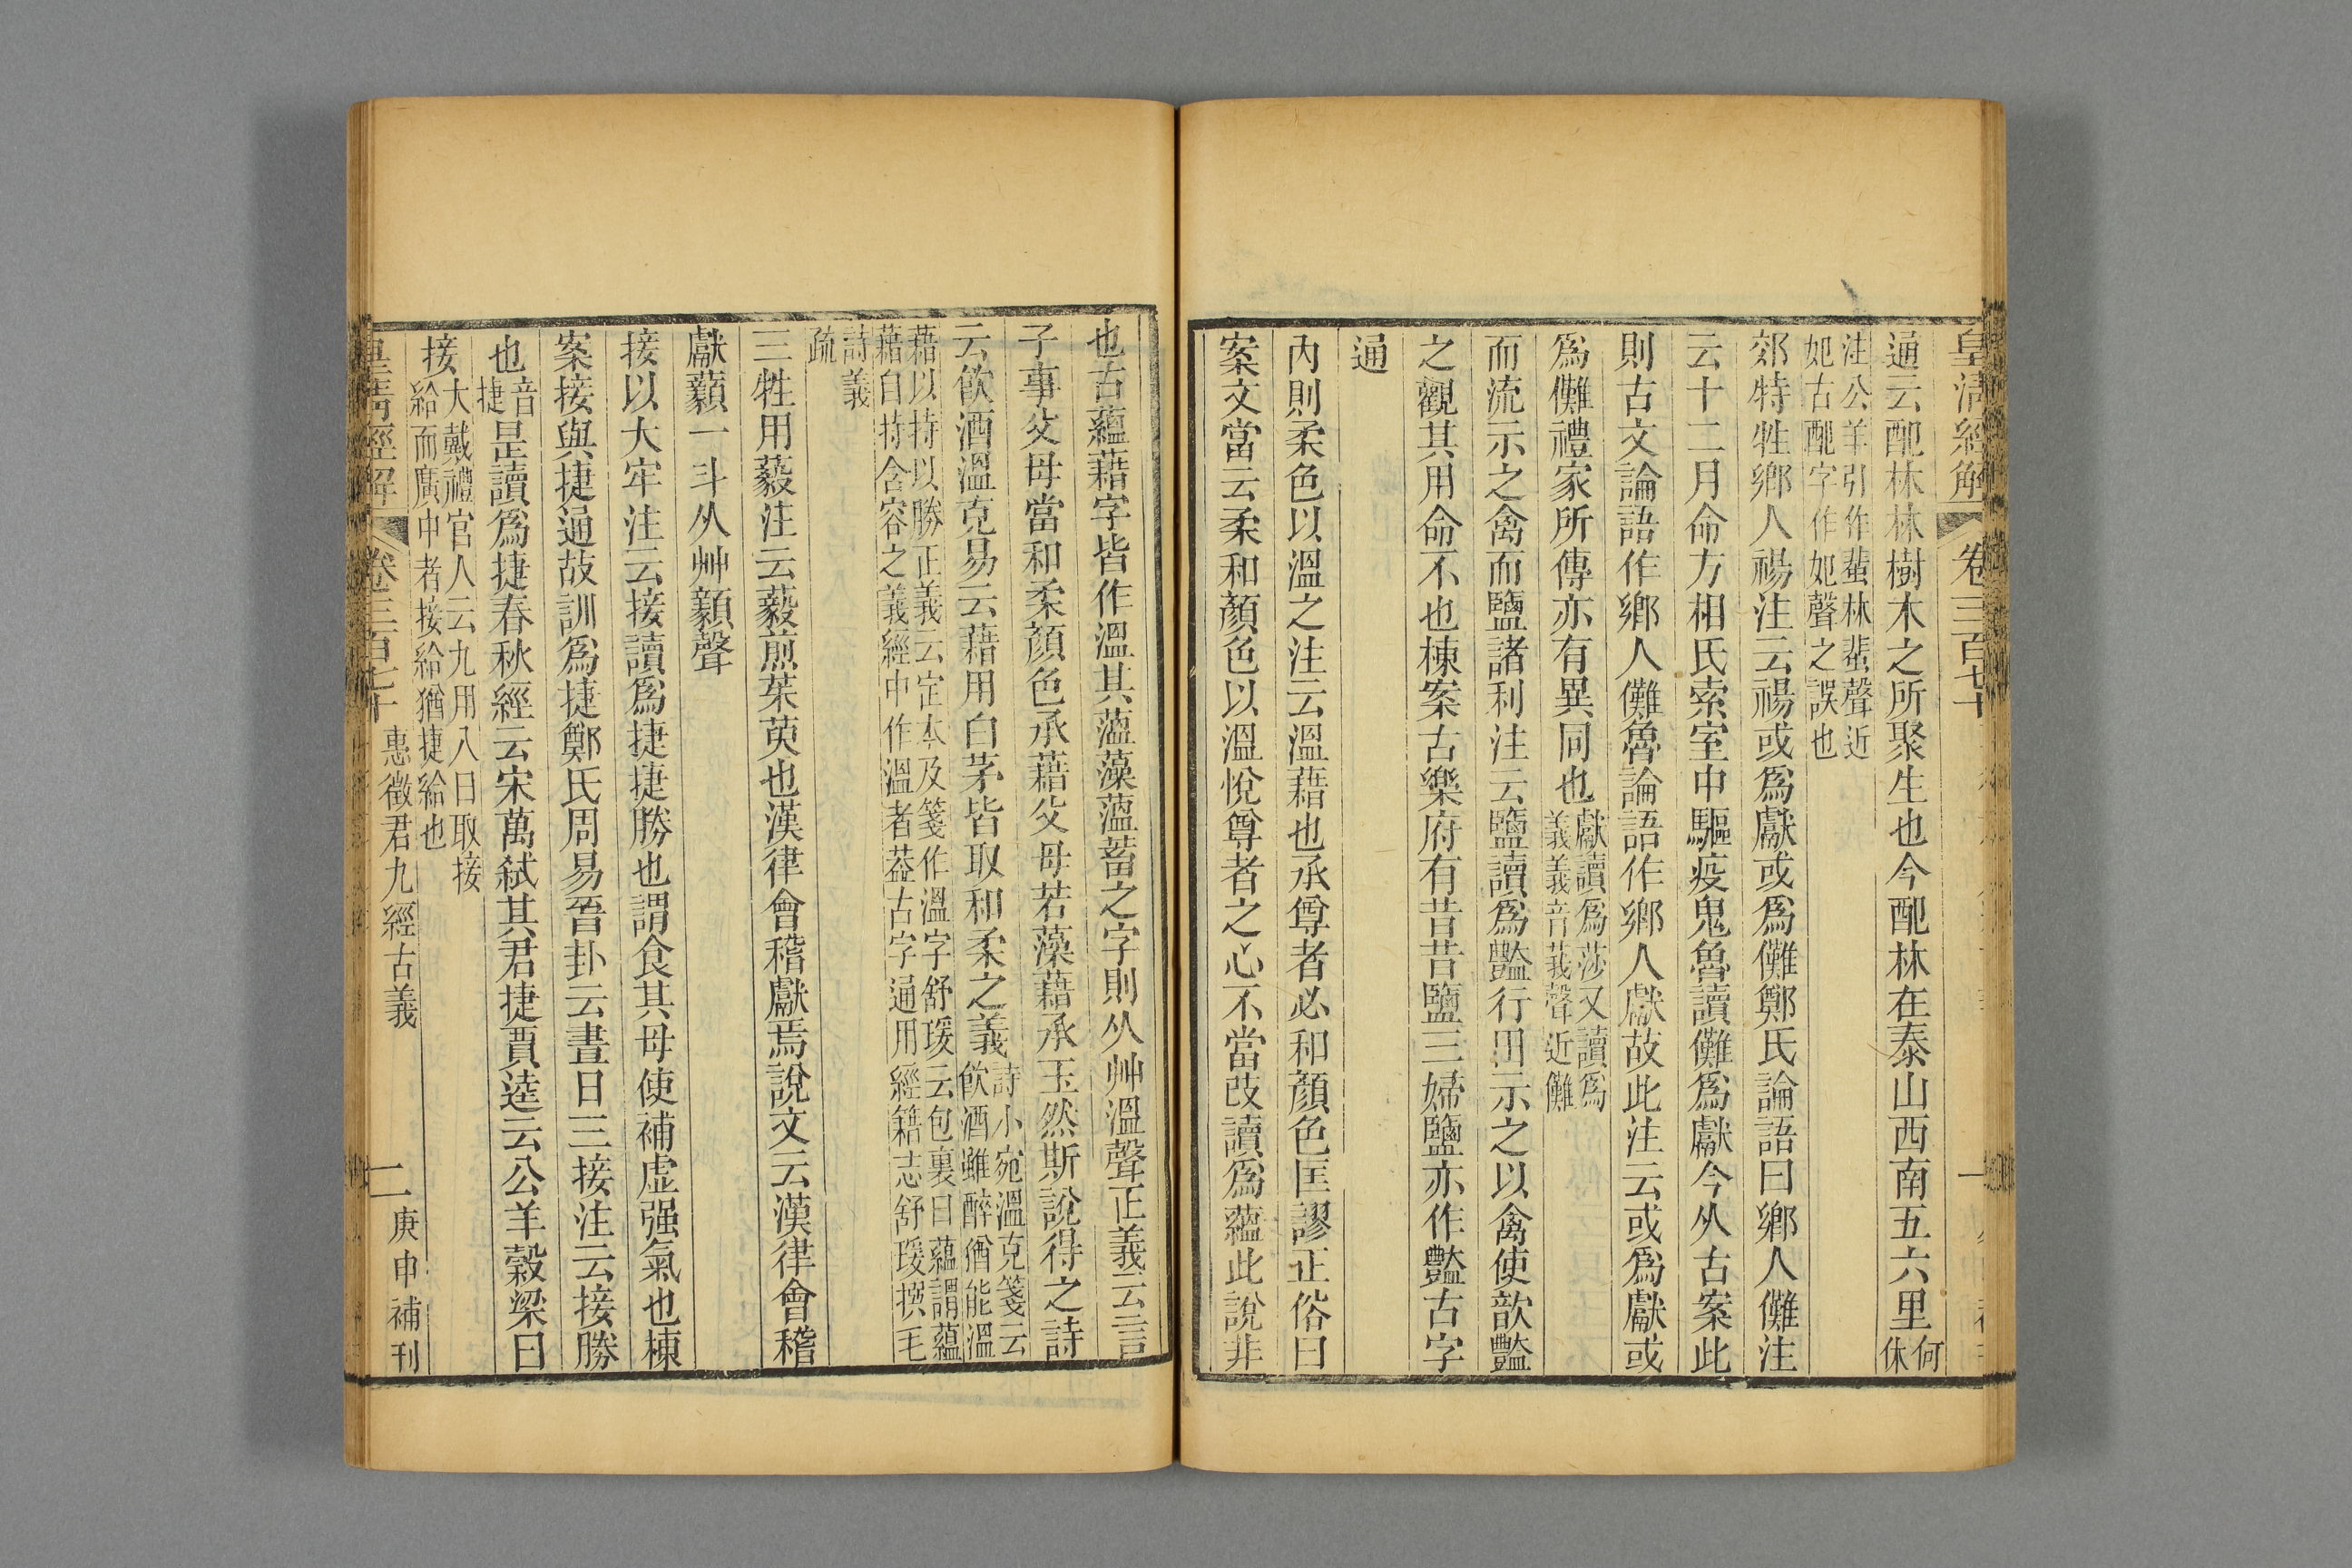 皇清經解 卷三百七十 一
通云配林林樹木之所聚生也今配林在泰山西南五六里何休
注公羊引作蜚林蜚聲近
妃古配字作妃聲之誤也
郊特牲鄉人禓注云禓或爲獻或爲儺鄭氏論語曰鄉人儺注
云十二月命方相氏索室中驅疫鬼魯讀儺爲獻今从古案此
則古文論語作鄉人儺魯論語作鄉人獻故此注云或爲獻或
爲儺禮家所傳亦有異同也獻讀爲莎又讀爲
義義音莪聲近儺
而流示之禽而鹽諸利注云鹽讀爲豔行田示之以禽使歆豔
之觀其用命不也棟案古樂府有昔昔鹽三婦鹽亦作豔古字
通
內則柔色以溫之注云溫藉也承尊者必和顏色匡謬正俗曰
案文當云柔和顏色以溫悅尊者之心不當改讀爲蘊此說非
也古蘊藉字皆作溫其薀藻薀蓄之字則从艸溫聲正義云言
子事父母當和柔顏色承藉父母若藻藉承玉然斯說得之詩
云飮酒溫克易云藉用白茅皆取和柔之義詩小宛溫克箋云
飮酒雖醉猶能溫
藉以持以勝正義云定本及箋作溫字舒瑗云包裹曰蘊謂蘊
藉自持含容之義經中作溫者葢古字通用經籍志舒瑗撰毛
詩義
疏
三牲用藙注云藙煎茱萸也漢律會稽獻焉說文云漢律會稽
獻藾一斗从艸顡聲
接以大牢注云接讀爲捷捷勝也謂食其母使補虛强氣也棟
案接與捷通故訓爲捷鄭氏周易晉卦云晝日三接注云接勝
也音捷是讀爲捷春秋經云宋萬弒其君捷賈逵云公羊穀梁曰
接大戴禮官人云九用八曰取接
給而廣中者接給猶捷給也
皇清經解 卷三百七十 惠徵君九經古義 二 庚申補刊